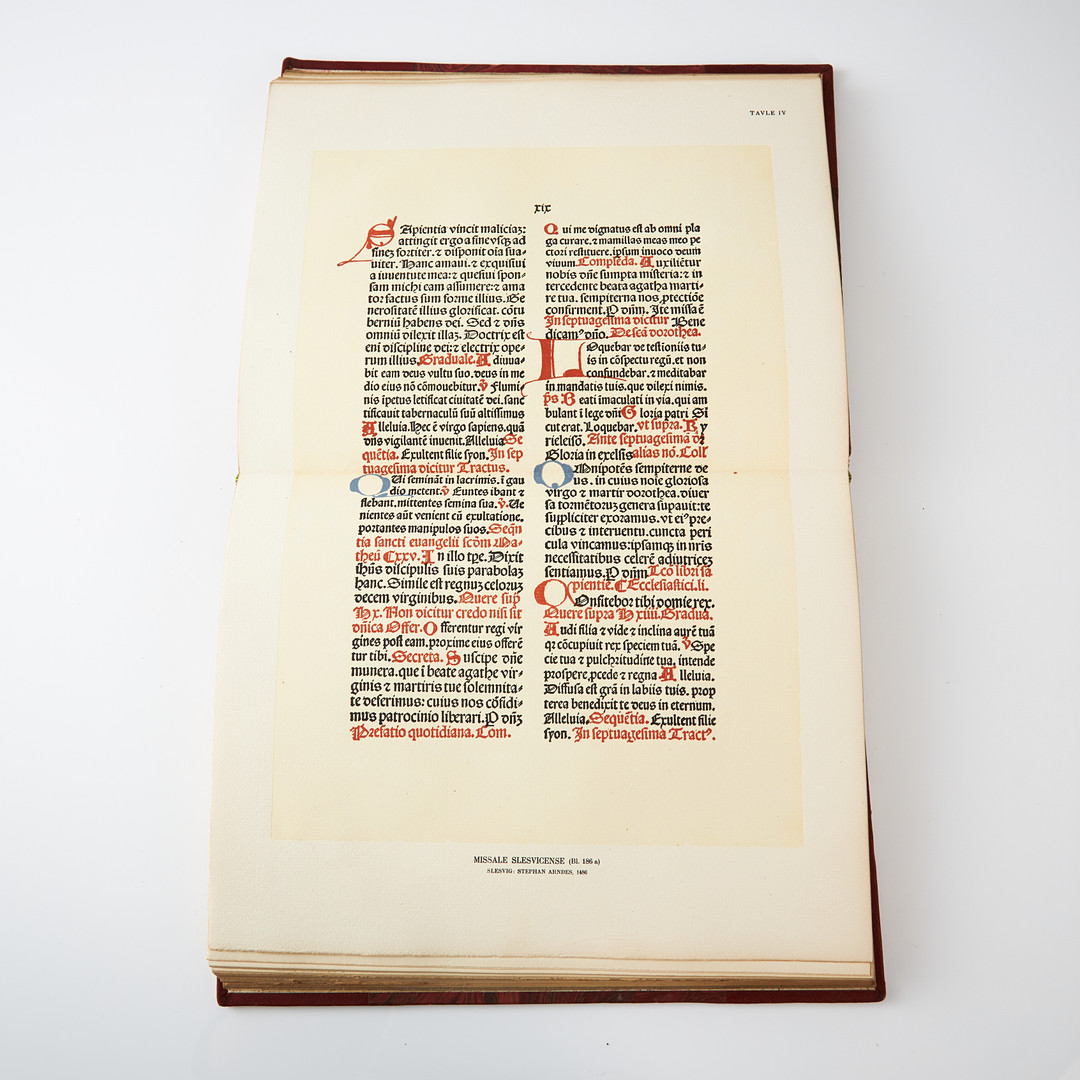 TAVLE IV
xix
SApientia vincit maliciaz:
attingit ergo a fine vsqz ad
finez fortiter. ⁊ disponit oīa sua-
uiter. Hanc amaui. ⁊ exquisiui
a iuuentute mea: ⁊ quesiui spon-
sam michi eam assumere: ⁊ ama
tor factus sum forme illius. Ge
nerositatē illius glorificat. cōtu
berniū habens dei. Sed ⁊ dn̄s
omniū dilexit illaz. Doctrix est
eni discipline dei: ⁊ electrix ope-
rum illius. Graduale. Adiuua-
bit eam deus vultu suo. deus in me
dio eius nō cōmouebitur. v̄ Flumi-
nis īpetus letificat ciuitatē dei. sanc
tificauit tabernaculū suū altissimus
Alleluia. Hec ē virgo sapiens. quā
dn̄s vigilantē inuenit. Alleluia Se
quētia. Exultent filie syon. In sep
tuagesima dicitur Tractus.
QUi semināt in lacrimis. ī gau
dio metent. v̄ Euntes ibant ⁊
flebant. mittentes semina sua. v̄. Ue
nientes aūt venient cū exultatione.
portantes manipulos suos. Seqn̄
tia sancti euangelii scōm Ma-
theū Cxxv. In illo tpe. Dixit
ihūs discipulis suis parabolaz
hanc. Simile est regnuz celoruz
decem virginibus. Quere sup̄
Hx. Non dicitur credo nisi sit
dn̄ica Offer. Offerentur regi vir
gines post eam. proxime eius offerē
tur tibi. Secreta. Suscipe dn̄e
munera. que ī beate agathe vir-
ginis ⁊ martiris tue solemnita-
te deferimus: cuius nos cōfidi-
mus patrocinio liberari. P dn̄z
Prefatio quotidiana. Com.
Qui me dignatus est ab omni pla
ga curare. ⁊ mamillas meas meo pe
ctori restituere. ipsum inuoco deum
viuum. Complēda. Auxiliētur
nobis dn̄e sumpta misteria: ⁊ in
tercedente beata agatha marti-
re tua. sempiterna nos ꝓtectiōe
confirment. P dn̄m. Ite missa ē
In septuagesima dicitur Bene
dicamꝰ dn̄o. De scā dorothea.
LOquebar de testioniis tu-
is in cōspectu regū. et non
confundebar. ⁊ meditabar
in mandatis tuis. que dilexi nimis.
ps Beati īmaculati in via. qui am
bulant ī lege dn̄i Gloria patri Si
cut erat. Loquebar. vt supra. Ky
rieleisō. Ante septuagesimā dr̄
Gloria in excelsis alias nō. Coll̄
OMnipotēs sempiterne de
us. in cuius noīe gloriosa
virgo ⁊ martir dorothea. diuer
sa tormētoruz genera supauit: te
suppliciter exoramus. vt eiꝰ pre-
cibus ⁊ interuentu. cuncta peri
cula vincamus: ipsamqz in nr̄is
necessitatibus celerē adiutricez
sentiamus. P dn̄m Lcō libri sa
pientie. Ecclesiastici. li.
COnfitebor tibi domie rex.
Quere supra Hxiiii. Gradua.
Audi filia ⁊ vide ⁊ inclina aurē tuā
qr̄ cōcupiuit rex speciem tuā. v̄ Spe
cie tua ⁊ pulchritudine tua. intende
prospere. ꝓcede ⁊ regna Alleluia.
Diffusa est grā in labiis tuis. prop
terea benedixit te deus in eternum.
Alleluia. Sequētia. Exultent filie
syon. In septuagesima Tractꝰ.
MISSALE SLESVICENSE (Bl. 186 a)
SLESVIG: STEPHAN ARNDES, 1486